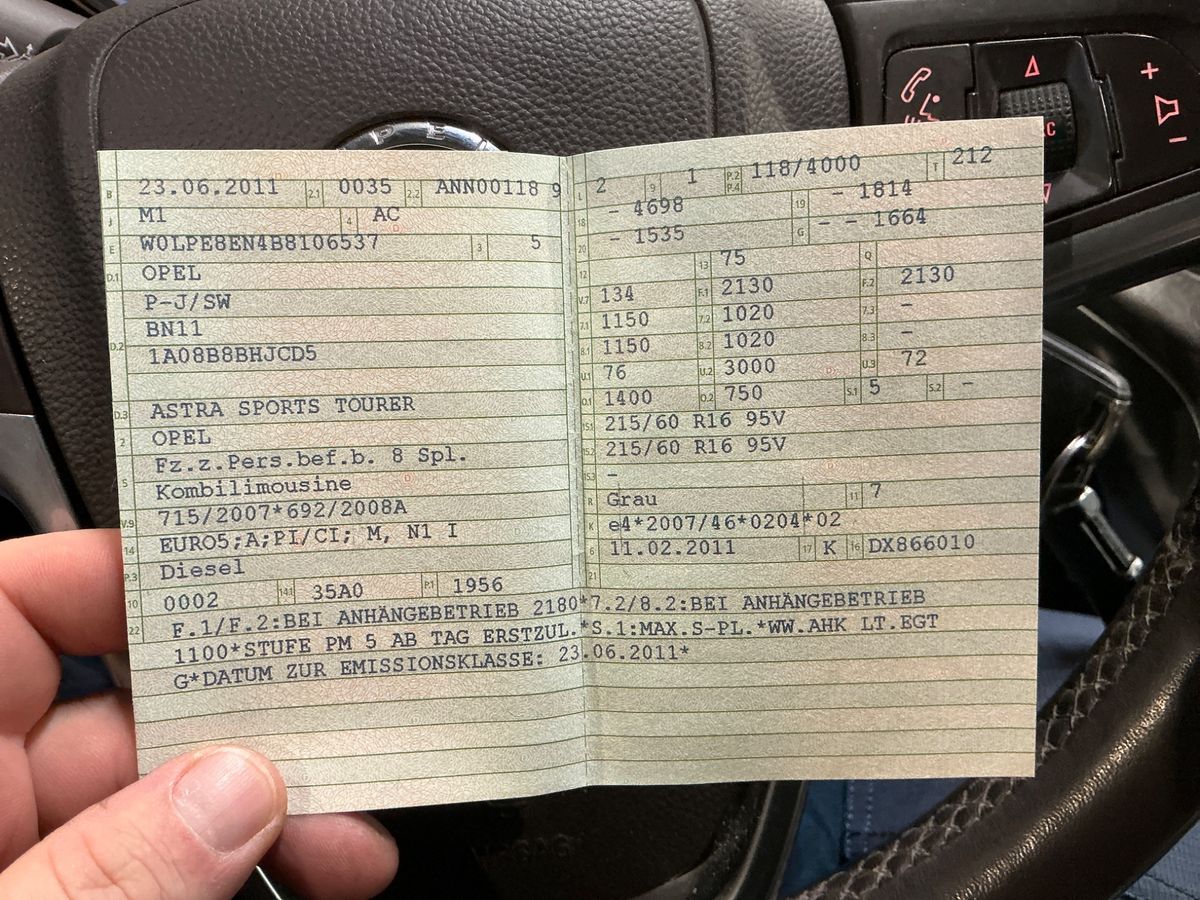 P E
+
RC
−
B 23.06.2011 2.1 0035 2.2 ANN00118 9
J M1 4 AC
E W0LPE8EN4B8106537 3 5
D.1 OPEL
P-J/SW
D.2 BN11
1A08B8BHJCD5
D.3 ASTRA SPORTS TOURER
2 OPEL
5 Fz.z.Pers.bef.b. 8 Spl.
Kombilimousine
V.9 715/2007*692/2008A
14 EURO5;A;PI/CI; M, N1 I
P.3 Diesel
10 0002 14.1 35A0 P.1 1956
L 2 9 1 P.2 P.4 118/4000 T 212
18 - 4698 19 - 1814
20 - 1535 G - - 1664
12 13 75 Q
V.7 134 F.1 2130 F.2 2130
7.1 1150 7.2 1020 7.3 -
8.1 1150 8.2 1020 8.3 -
U.1 76 U.2 3000 U.3 72
O.1 1400 O.2 750 S.1 5 S.2 -
15.1 215/60 R16 95V
15.2 215/60 R16 95V
15.3 -
R Grau 11 7
K e4*2007/46*0204*02
6 11.02.2011 17 K 16 DX866010
21
22 F.1/F.2:BEI ANHÄNGEBETRIEB 2180*7.2/8.2:BEI ANHÄNGEBETRIEB
1100*STUFE PM 5 AB TAG ERSTZUL.*S.1:MAX.S-PL.*WW.AHK LT.EGT
G*DATUM ZUR EMISSIONSKLASSE: 23.06.2011*